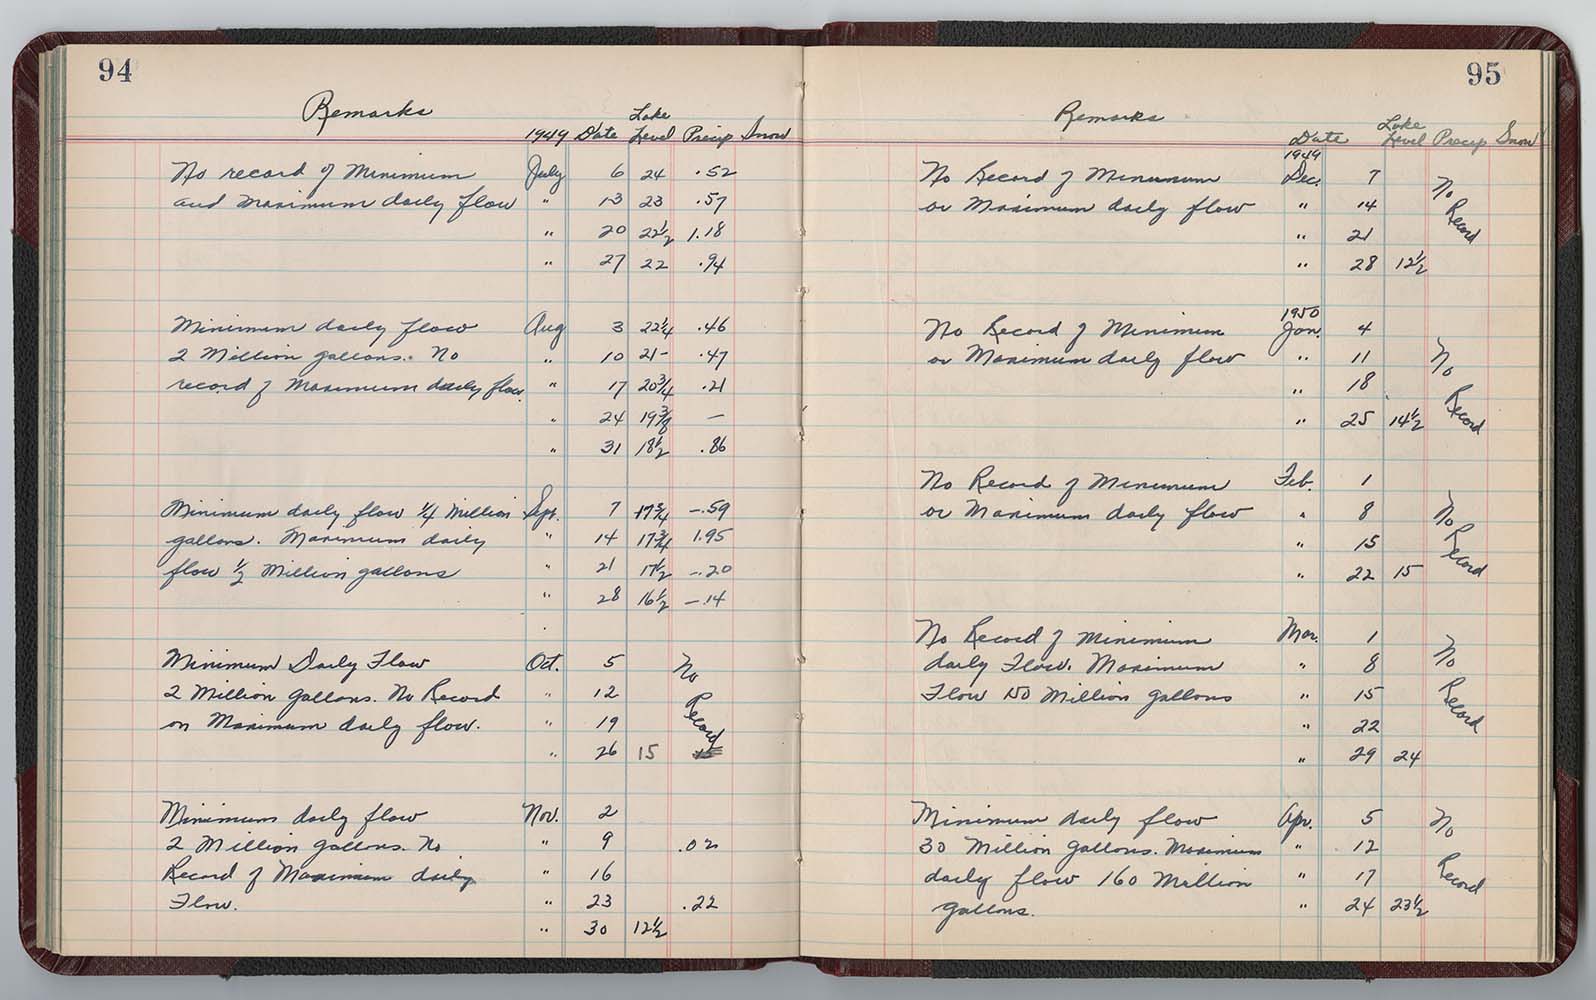 94
Remarks 1949 Date Lake Level Precip Snow
No record of Minimum July 6 24 .52
and Maximum daily flow " 13 23 .57
" 20 22 1/2 1.18
" 27 22 .94
Minimum daily flow Aug 3 22 1/4 .46
2 Million gallons. No " 10 21- .47
record of Maximum daily flow. " 17 20 3/4 .21
" 24 19 3/8 —
" 31 18 1/2 .86
Minimum daily flow 1/4 Million Sept. 7 17 3/4 —.59
gallons. Maximum daily " 14 17 3/4 1.95
flow 1/2 Million gallons " 21 17 1/2 —.20
" 28 16 1/2 —.14
Minimum Daily Flow Oct. 5 No
2 Million Gallons. No Record " 12 Record
on Maximum daily flow. " 19
" 26 15
Minimum daily flow Nov. 2
2 Million gallons. No " 9 .02
Record of Maximum daily " 16
Flow. " 23 .22
" 30 12 1/2
95
Remarks Date Lake Level Precip Snow
1949
No Record of Minimum Dec. 7 No
or Maximum daily flow " 14 Record
" 21
" 28 12 1/2
1950
No Record of Minimum Jan. 4
or Maximum daily flow " 11 No
" 18 Record
" 25 14 1/2
No Record of Minimum Feb. 1
or Maximum daily flow " 8 No
" 15 Record
" 22 15
No Record of Minimum Mar. 1
daily Flow. Maximum " 8 No
Flow 150 Million gallons " 15 Record
" 22
" 29 24
Minimum daily flow Apr. 5 No
30 Million Gallons. Maximum " 12
daily flow 160 Million " 17 Record
gallons. " 24 23 1/2